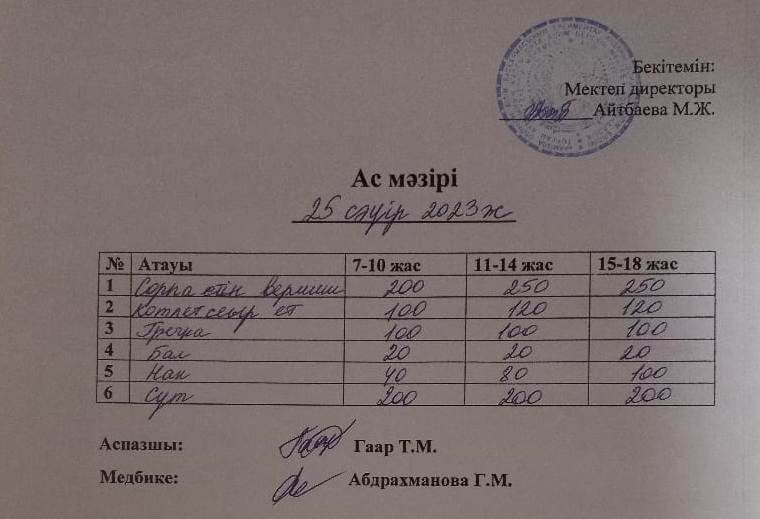 Бекітемін:
Мектеп директоры
Айтбаева М.Ж.
Ас мәзірі
25 сәуір 2023ж
№ Атауы 7-10 жас 11-14 жас 15-18 жас
1 Сорпа 200 250 250
2 Котлет сиыр ет 100 120 120
3 Гречка 100 100 100
4 Бал 20 20 20
5 Нан 40 80 100
6 Сүт 200 200 200
Аспазшы: Гаар Т.М.
Медбике: Абдрахманова Г.М.